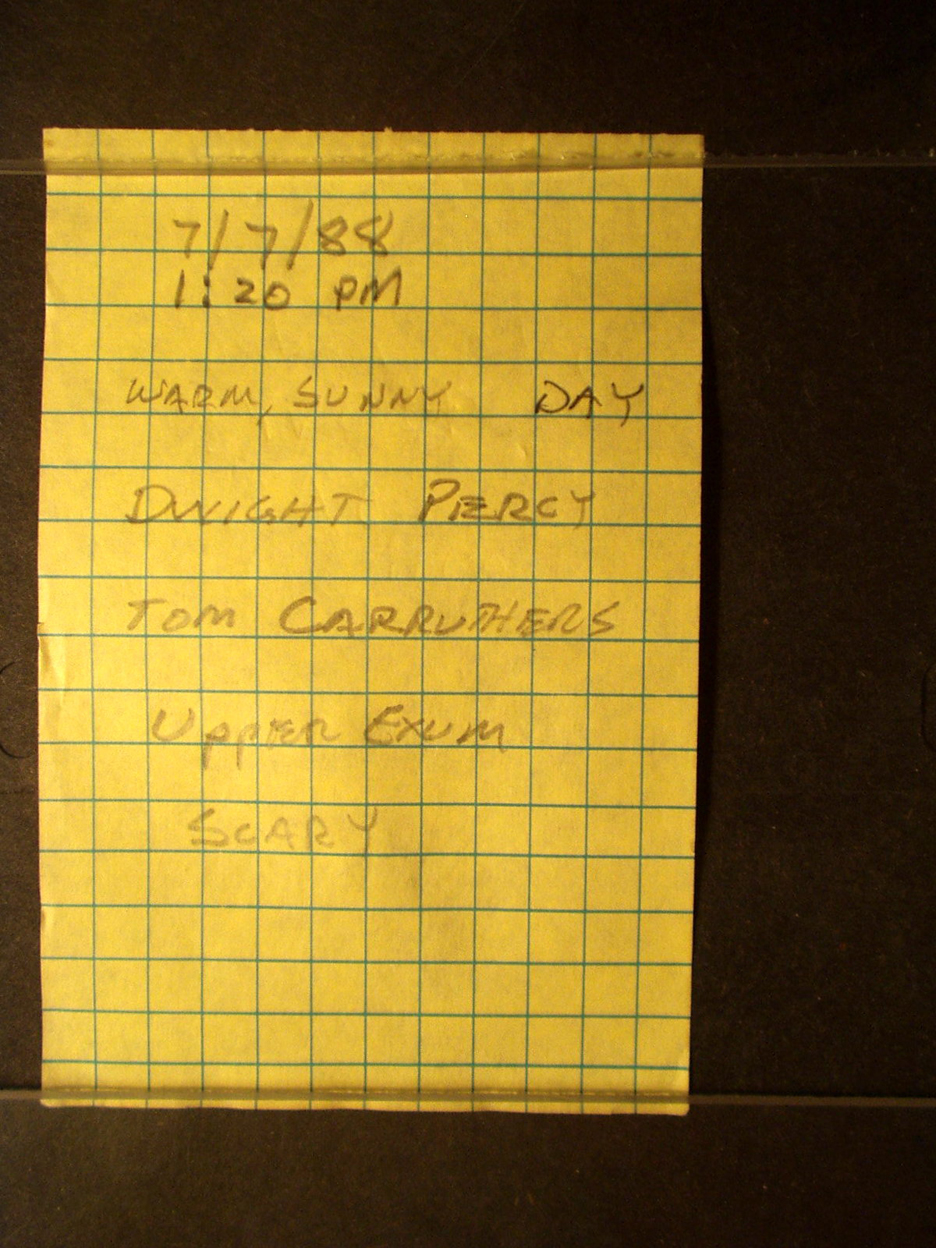 7/7/88
1:20 PM
WARM, SUNNY DAY
DWIGHT PIERCY
TOM CARRUTHERS
UPPER EXUM
SCARY